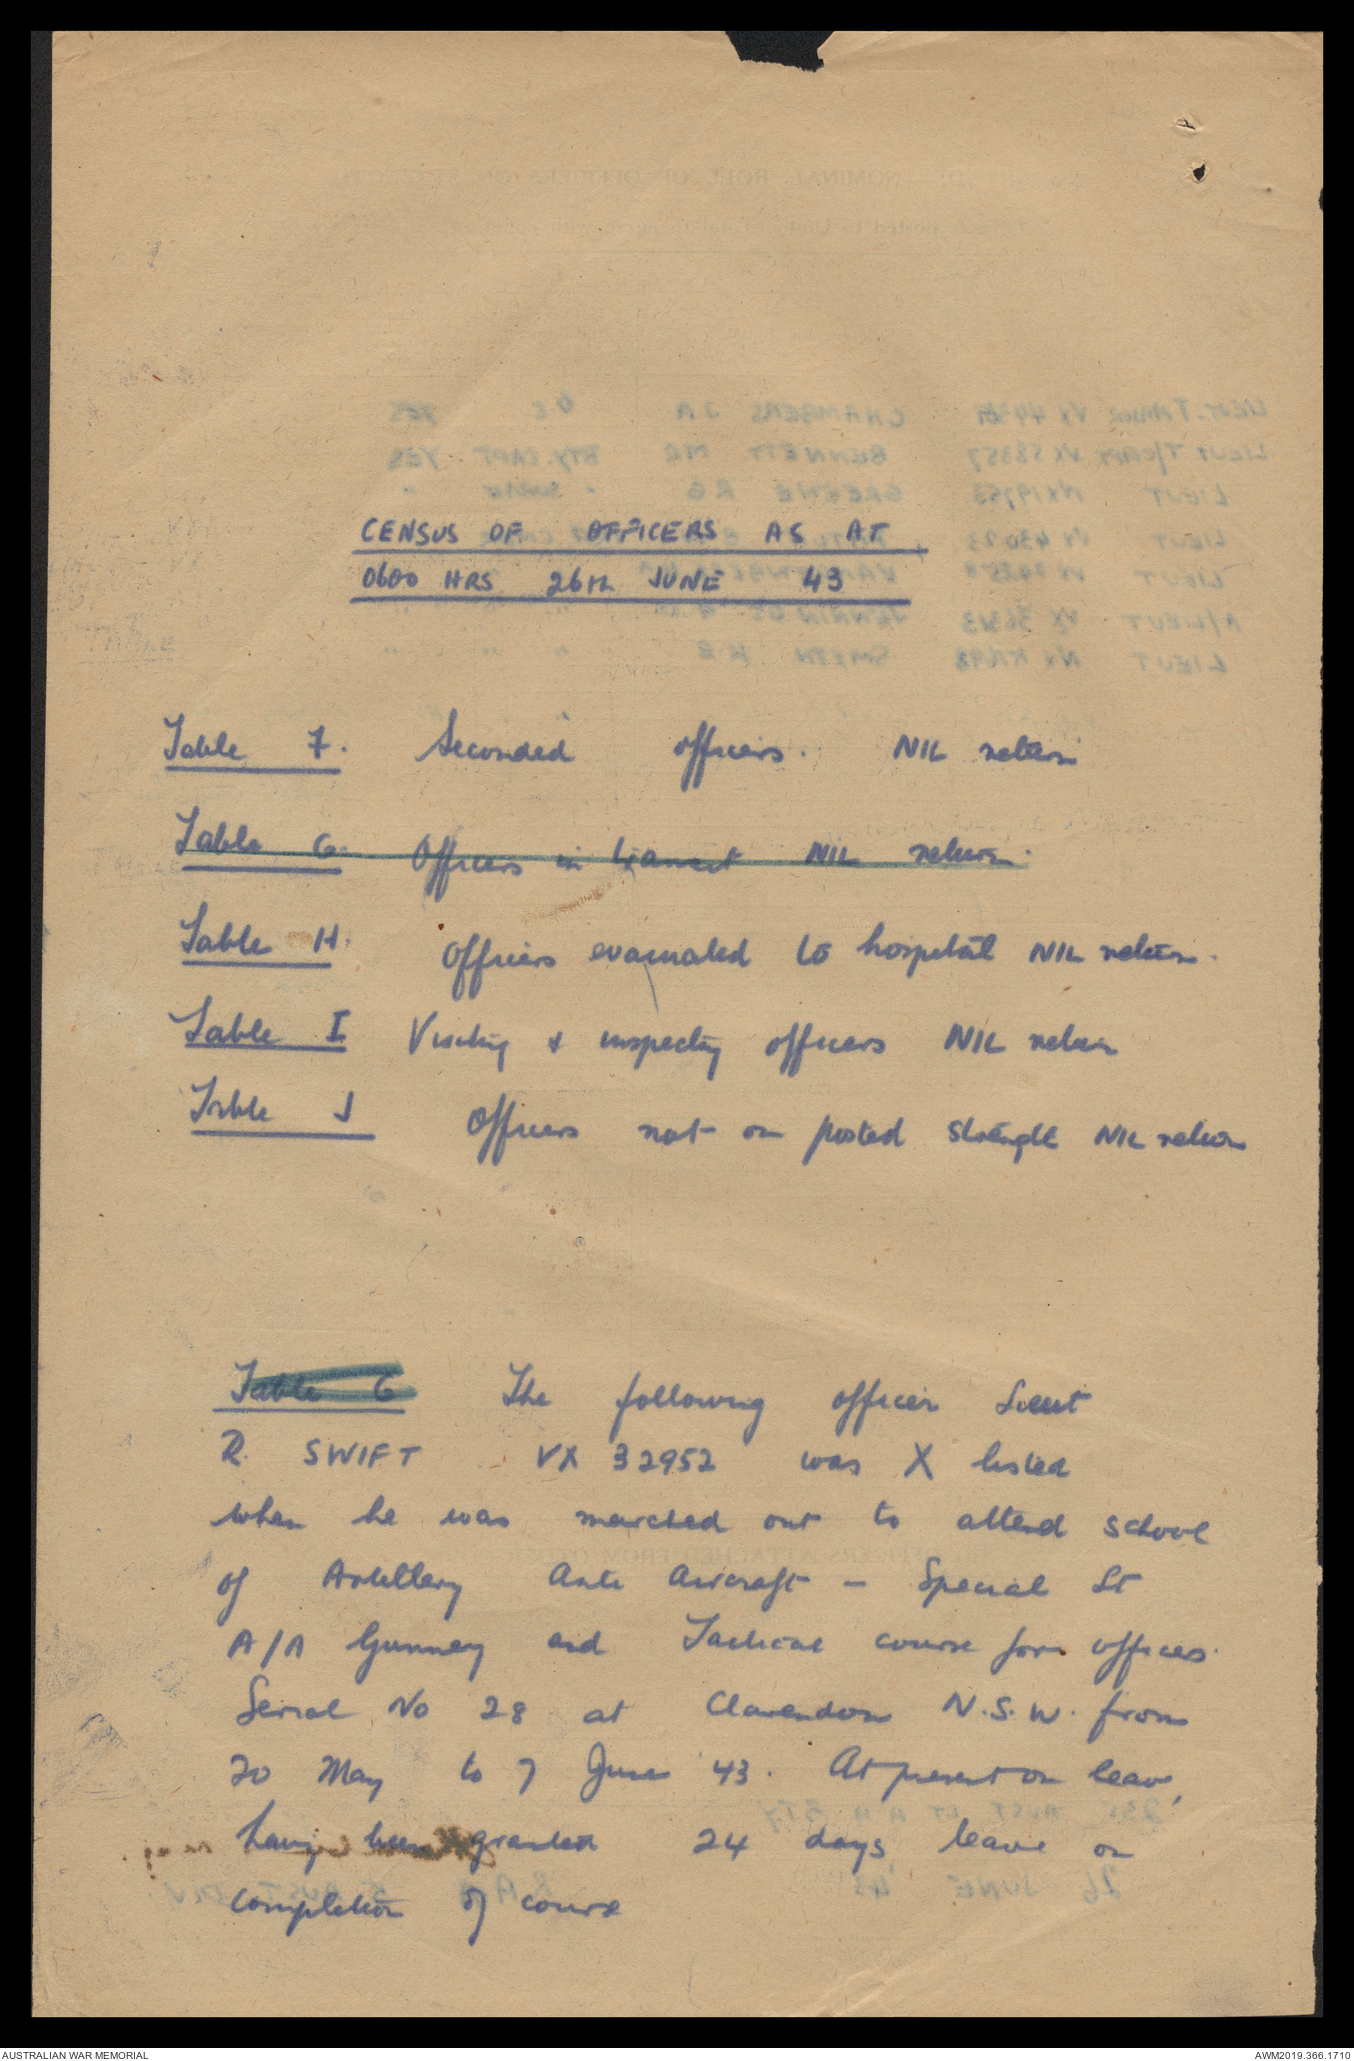 CENSUS OF OFFICERS AS AT
0600 HRS 26th JUNE 43
Table F. Seconded officers. NIL return
Table G. Officers in transit NIL return.
Table H. Officers evacuated to hospital NIL return.
Table I Visiting & inspecting officers NIL return
Table J Officers not on posted strength NIL return
Table G The following officer Lieut
R. SWIFT VX 32952 was X listed
when he was marched out to attend school
of Artillery Anti Aircraft - Special Lt
A/A Gunnery and Tactical course for officers.
Serial No 28 at Clarendon N.S.W. from
20 May to 7 June 43. At present on leave,
having been granted 24 days leave on
completion of course
AUSTRALIAN WAR MEMORIAL
AWM2019.366.1710